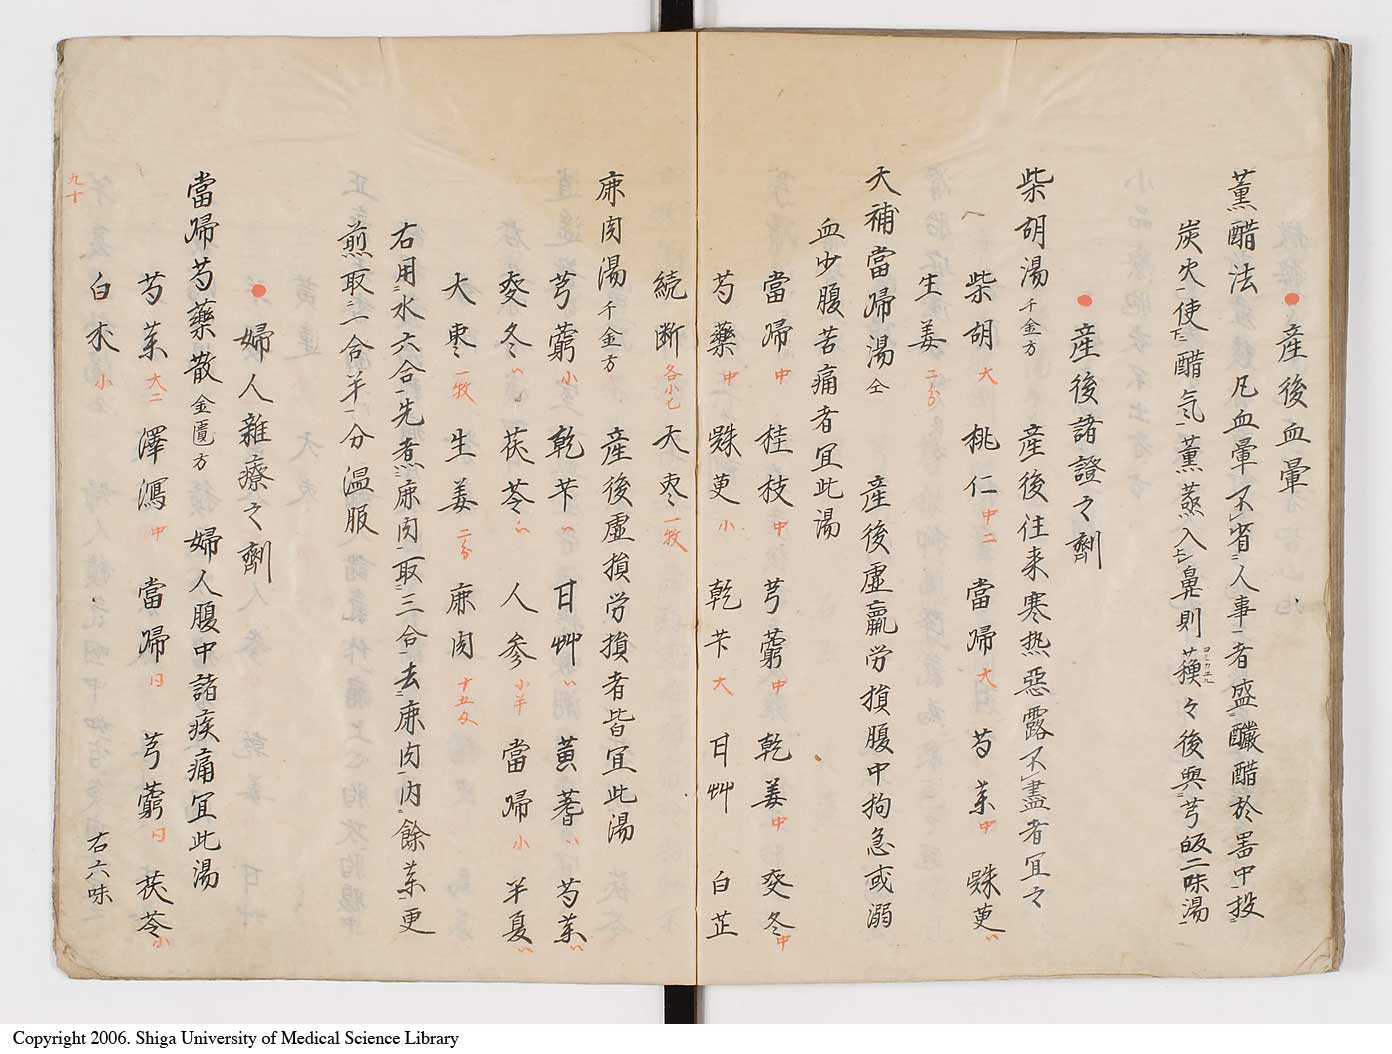 ●産後血暈
薫醋法　凡血暈不省人事者盛釅醋於噐中投
炭火使醋氣薫蒸入鼻則䕷々後與芎皈二味湯
●産後諸證之劑
柴胡湯 千金方　産後往来寒热惡露不盡者宜々
柴胡 大 桃仁 中二 當帰 大 芍薬 中
生姜 二分
大補當帰湯 仝　産後虚羸労損腹中拘急或溺
血少腹苦痛者宜此湯
當帰 中 桂枝 中 芎藭 中 乾姜 中 麥冬 中
芍藥 中 小 乾芐 大 甘艸 白芷
続断 各小七 大枣 一枚
麻肉湯 千金方　産後虚損労損者皆宜此湯
芎藭 小 乾芐 〃 甘艸 〃 黄蓍 〃 芍薬 〃
麥冬 〃 茯苓 〃 人参 小半 當帰 小 半夏 〃
大枣 一枚 生姜 二分 麻肉 十五文
右用水六合先煮麻肉取三合去麻肉内餘薬更
煎取一合半分温服
●婦人雜療之劑
當帰芍藥散 金匱方　婦人腹中諸疾痛宜此湯
芍薬 大二 澤瀉 中 當帰 同 芎藭 同 茯苓 小
白朮 小　右六味
九十
Copyright 2006. Shiga University of Medical Science Library